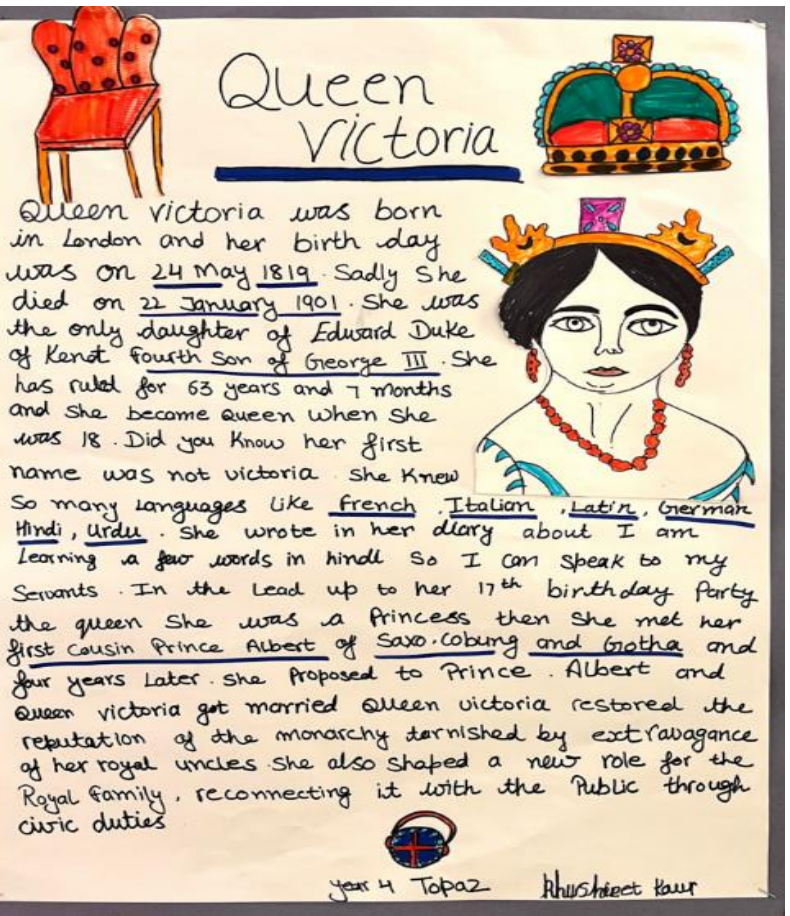 Queen
Victoria
Queen victoria was born
in London and her birth day
was on 24 May 1819. Sadly She
died on 22 January 1901. She was
the only daughter of Edward Duke
of Kenat fourth Son of George III. She
has ruled for 63 years and 7 months
and She became Queen when She
was 18. Did you Know her first
name was not victoria. She Knew
So many Languages Like french, Italian, Latin, German
Hindi, Urdu. She wrote in her diary about I am
Learning a few words in hindi So I can speak to my
Servants. In the Lead up to her 17th birthday Party
the queen She was a Princess then She met her
first Cousin Prince Albert of Saxo.coburg and Gotha and
four years Later. She Proposed to Prince. Albert and
Queen victoria got married Queen victoria restored the
reputation of the monarchy tarnished by extravagance
of her royal uncles. She also Shaped a new role for the
Royal family, reconnecting it with the Public through
civic duties
year 4 Topaz Kaur